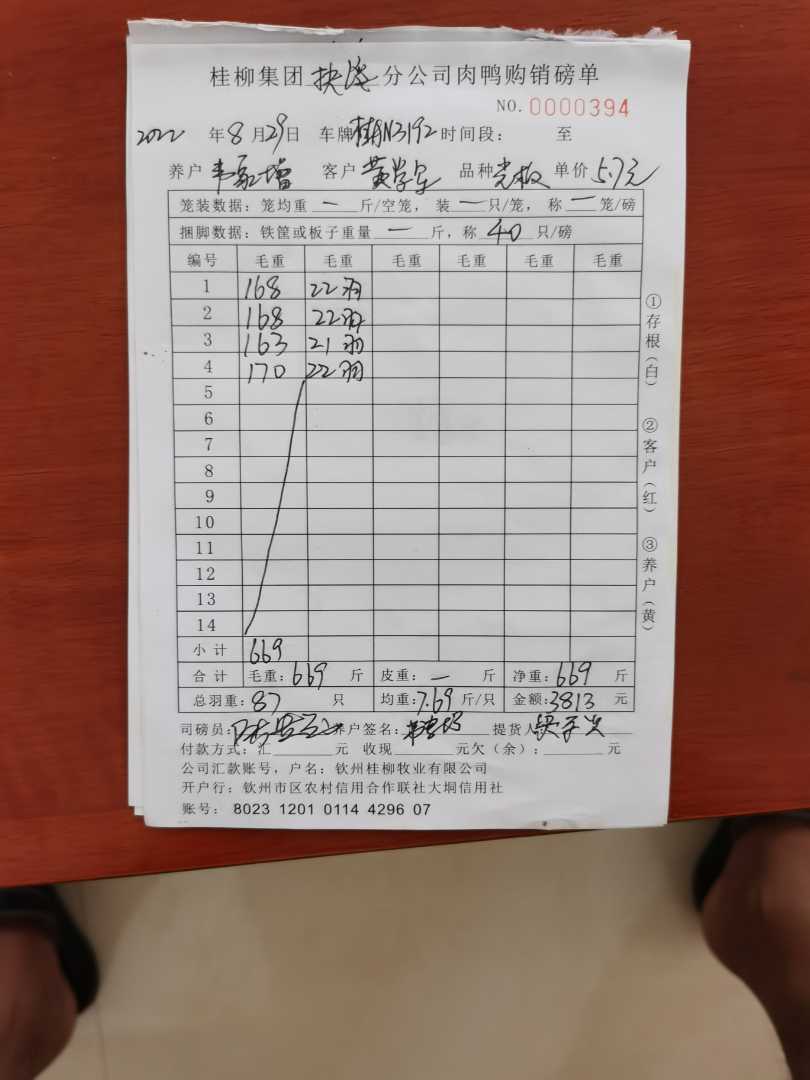 桂柳集团 分公司肉鸭购销磅单
NO.0000394
2022 年 8 月 29 日 车牌 桂AN3192 时间段: 至
养户 客户 黄学 品种 光板 单价 5.7元
笼装数据: 笼均重 一 斤/空笼, 装 一 只/笼, 称 一 笼/磅
捆脚数据: 铁筐或板子重量 一 斤, 称 40 只/磅
编号 毛重 毛重 毛重 毛重 毛重 毛重
1 168 22羽
2 168 22羽
3 163 21羽
4 170 22羽
5
6
7
8
9
10
11
12
13
14
小计 669
合计 毛重: 669 斤 皮重: 一 斤 净重: 669 斤
总羽重: 87 只 均重: 7.69 斤/只 金额: 3813 元
司磅员: 养户签名: 提货人
付款方式: 汇 元 收现 元欠(余): 元
公司汇款账号, 户名: 钦州桂柳牧业有限公司
开户行: 钦州市区农村信用合作联社大垌信用社
账号: 8023 1201 0114 4296 07
①存根(白)
②客户(红)
③养户(黄)